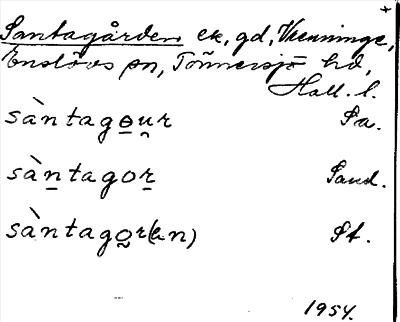 +
Santagården ek, gd, Veeninge,
Enslövs sn, Tönnersjö hd,
Hall. l.
sàntagɵu̯r Sa.
sàn̠tagor̠ Sand.
sàntago̰r(ən) St.
1954.